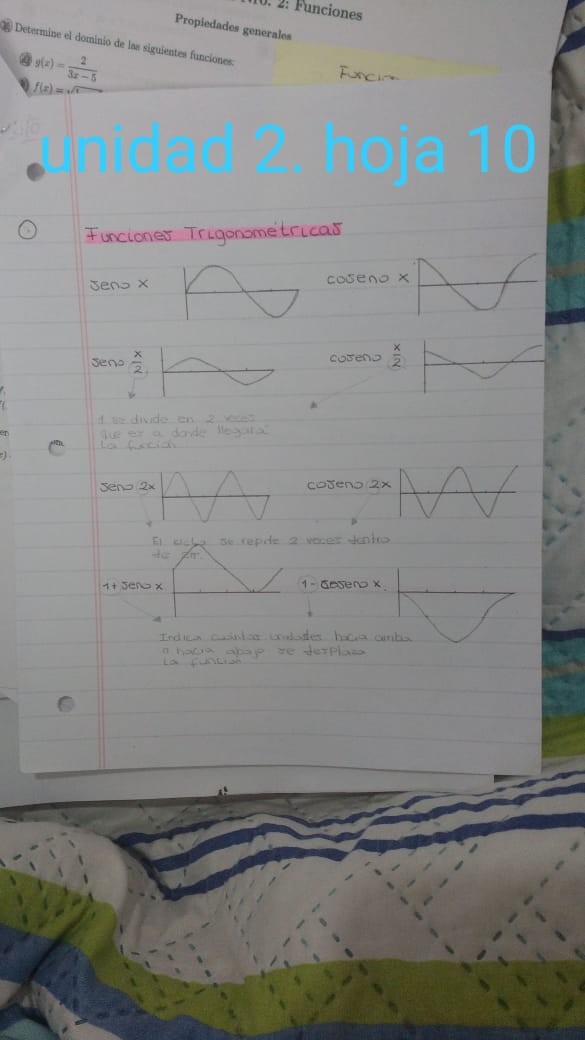 2: Funciones
Propiedades generales
Determine el dominio de las siguientes funciones:
g(x) = 2/(3x − 5)
f(x) = √
Funcio
unidad 2. hoja 10
Funciones Trigonométricas
seno x
coseno x
seno x/2
coseno x/2
se divide en 2 veces
que es a donde llegara
la función
seno 2x
coseno 2x
El ciclo se repite 2 veces dentro
de 2π.
1+ seno x
1- coseno x
Indica cuántas unidades hacia arriba
o hacia abajo se desplaza
la función